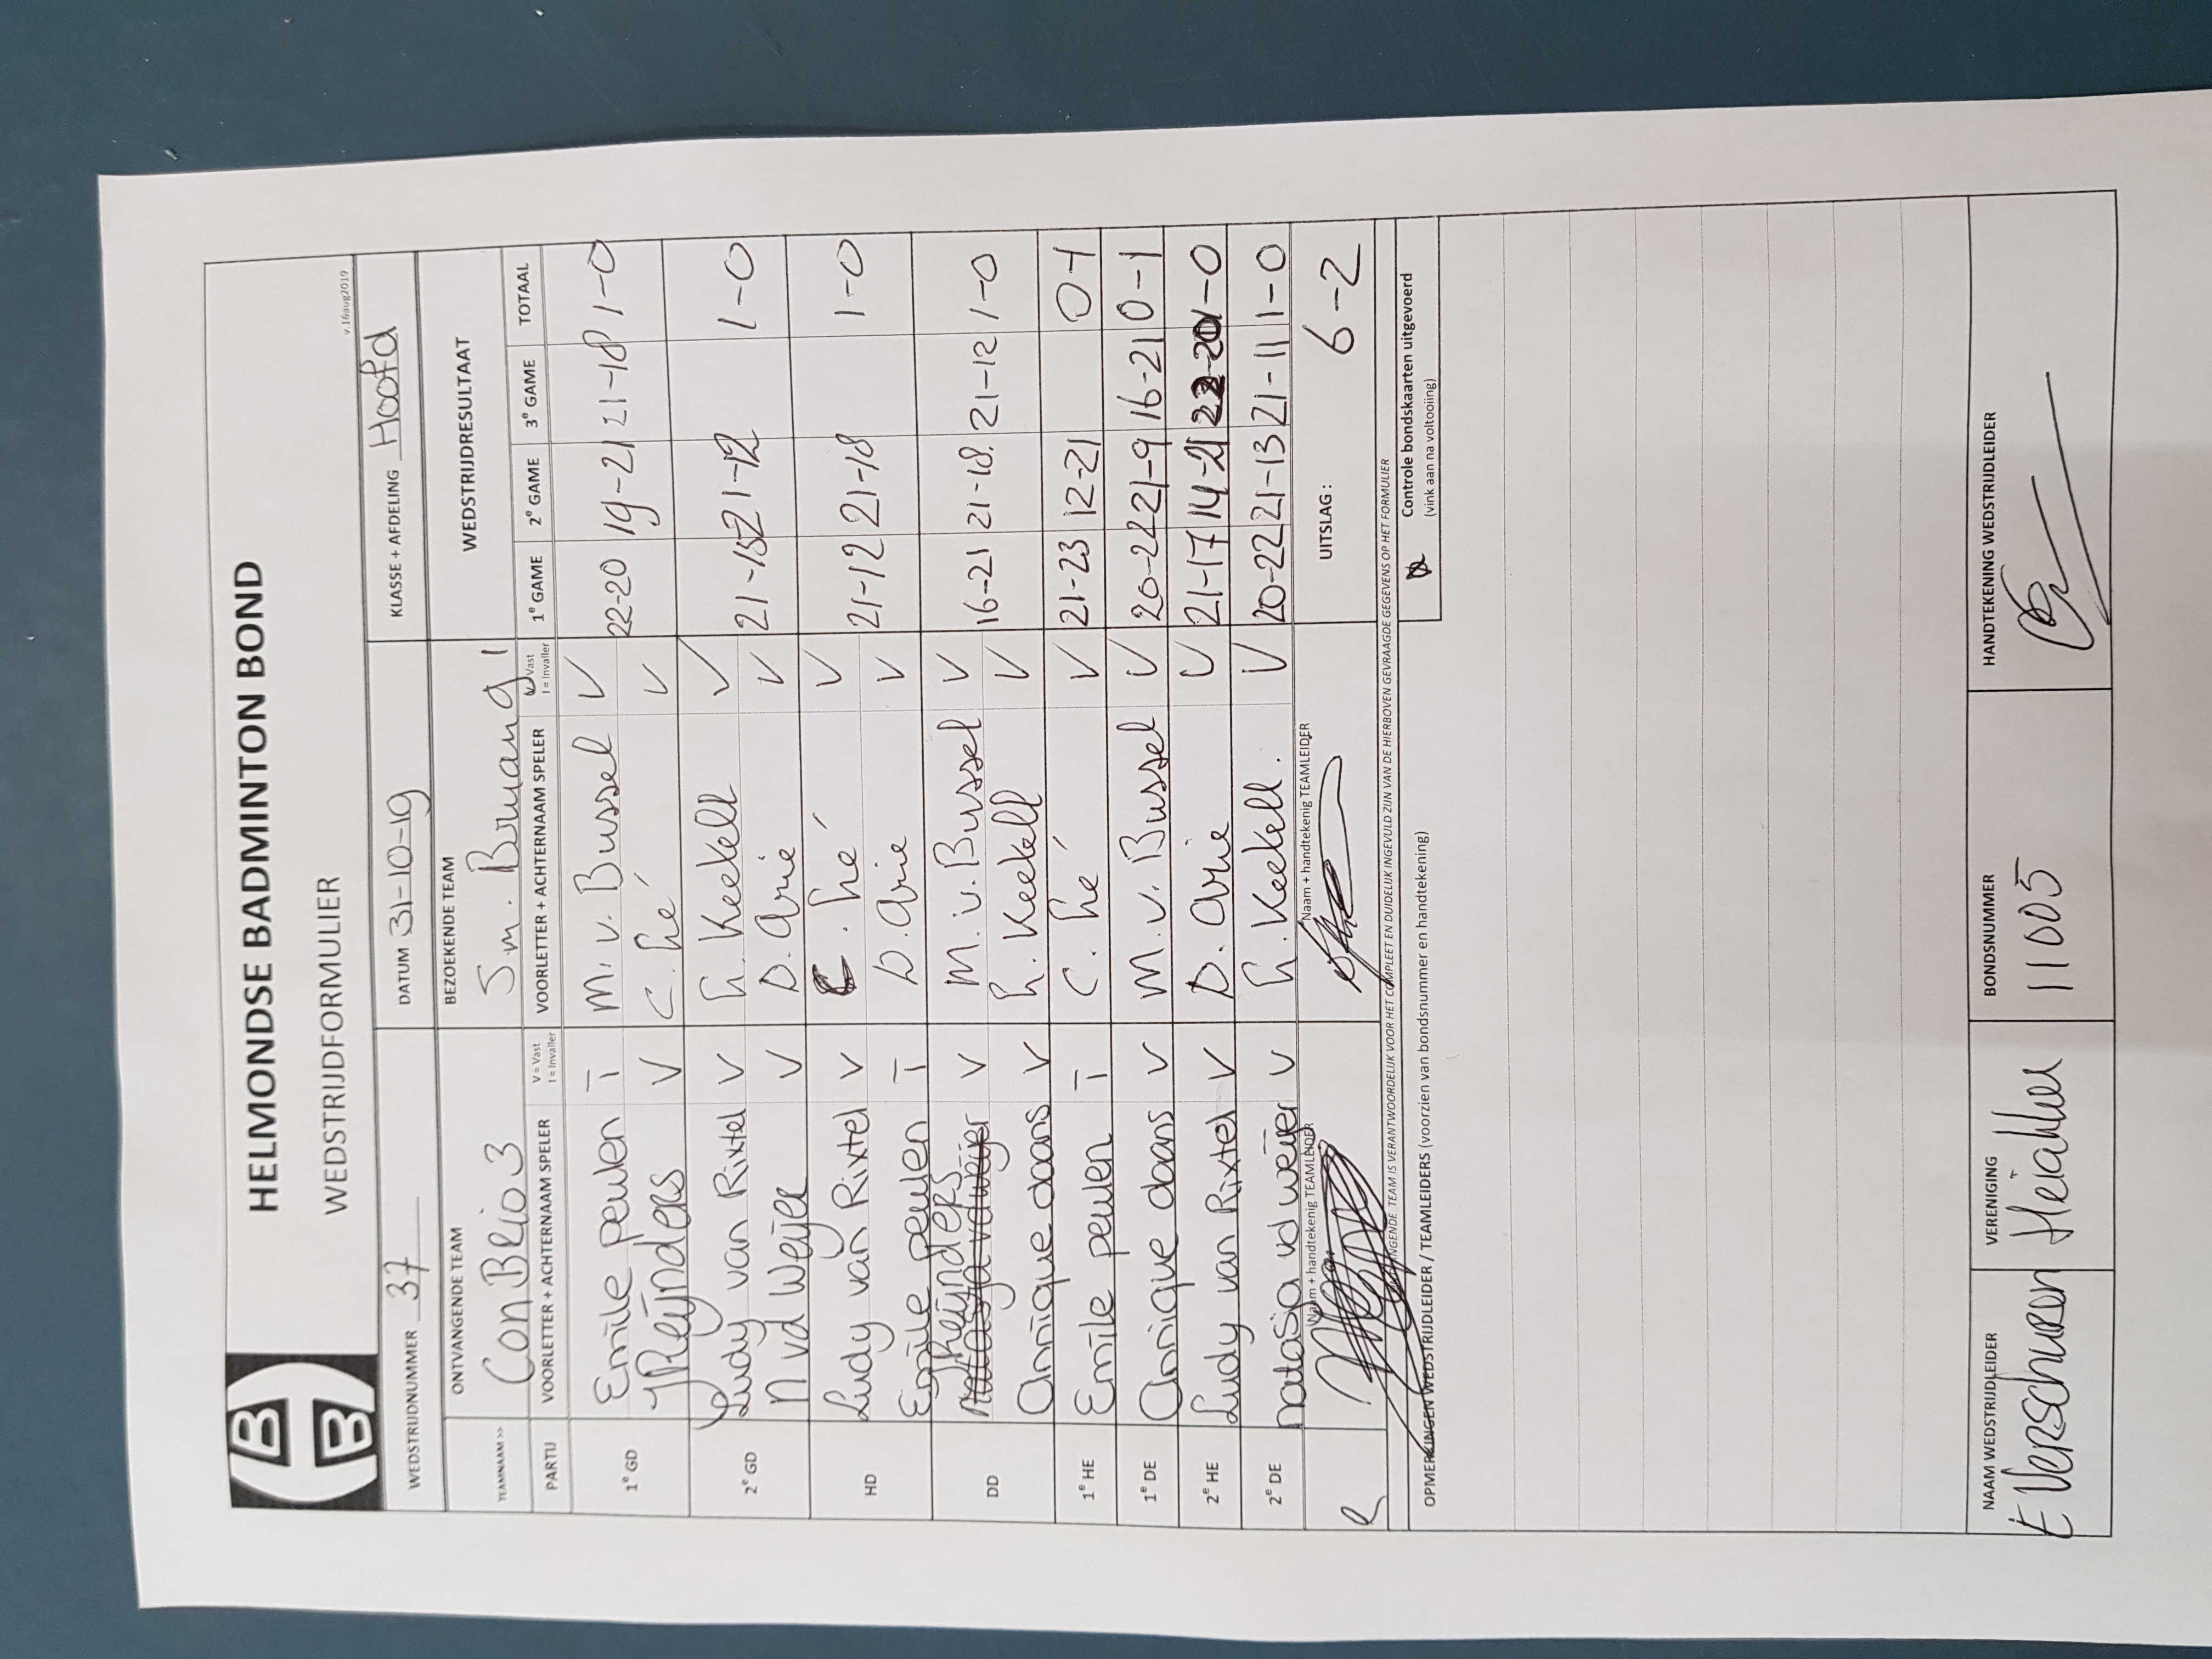 HELMONDSE BADMINTON BOND
WEDSTRIJDFORMULIER
v.16aug2019
WEDSTRIJDNUMMER 37 DATUM 31-10-19 KLASSE + AFDELING Hoofd
TEAMNAAM >> ONTVANGENDE TEAM BEZOEKENDE TEAM WEDSTRIJDRESULTAAT
Con Brio 3
PARTIJ VOORLETTER + ACHTERNAAM SPELER V = Vast I = Invaller VOORLETTER + ACHTERNAAM SPELER Vast I = Invaller 1e GAME 2e GAME 3e GAME TOTAAL
1e GD Emile peulen I M. v. Bussel V 22-20 19-21 21-18 1-0
Y Reijnders V C. V
2e GD Ludy van Rixtel V Keekell V 21-15 21-12 1-0
N vd Weijer V D. Arie V
HD Ludy van Rixtel V C. V 21-12 21-18 1-0
Emile peulen I D. Arie V
DD Y Reijnders V M. v. Bussel V 16-21 21-18 21-12 1-0
Annique daans V Keekell V
1e HE Emile peulen I C. V 21-23 12-21 0-1
1e DE Annique daans V M. v. Bussel V 20-22 21-9 16-21 0-1
2e HE Ludy van Rixtel V D. Arie V 21-17 14-21 22-20 1-0
2e DE natasja vd weijer V Keekell. V 20-22 21-13 21-11 1-0
Naam + handtekenig TEAMLEIDER Naam + handtekenig TEAMLEIDER UITSLAG : 6-2
TEAM IS VERANTWOORDELIJK VOOR HET COMPLEET EN DUIDELIJK INGEVULD ZIJN VAN DE HIERBOVEN GEVRAAGDE GEGEVENS OP HET FORMULIER
OPMERKINGEN WEDSTRIJDLEIDER / TEAMLEIDERS (voorzien van bondsnummer en handtekening) Controle bondskarten uitgevoerd
(vink aan na voltooiing)
NAAM WEDSTRIJDLEIDER VERENIGING BONDSNUMMER HANDTEKENING WEDSTRIJDLEIDER
E Verschuren 11005